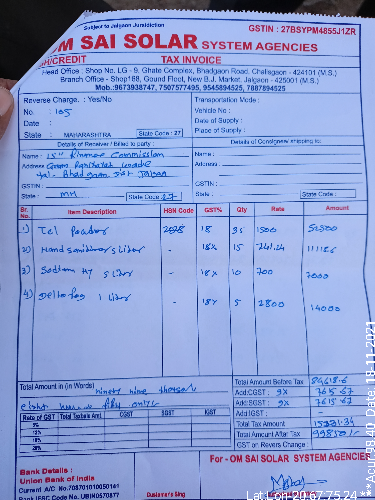 Subject to Jalgaon Juridiction
GSTIN : 27BSYPM4855J1ZR
OM SAI SOLAR SYSTEM AGENCIES
CASH/CREDIT TAX INVOICE
Head Office : Shop No. LG - 9, Ghate Complex, Bhadgaon Road, Chalisgaon - 424101 (M.S.)
Branch Office - Shop188, Gound Floor, New B.J. Market, Jalgaon - 425001 (M.S.)
Mob.:9673938747, 7507577495, 9545894525, 7887894525
Reverse Charge. : Yes/No
Transportation Mode :
No. : 105
Vehicle No :
Date :
Date of Supply :
State : MAHARASHTRA State Code : 27
Place of Supply :
Details of Receiver / Billed to party :
Details of Consignee/ shipping to:
Name : 15th Finance Commission
Name :
Address Gram Panchayat
Address :
Tal- Bhadgaon Dist Jalgaon
GSTIN :
GSTIN :
State : MH State Code 27
State : State Code :
Sr. No. Item Description HSN Code GST% Qty Rate Amount
1) 18 35 1500 52500
2) Hand sanitizer 5 liter - 18% 15 741.24
3) Sodium 5 liter - 18% 10 700 7000
4) 1 liter - 18% 5 2800 14000
Total Amount in (in Words)
ninety nine thousand
eight fifty only
Total Amount Before Tax 84618.6
Add:CGST : 9% 7615.67
Add:SGST : 9% 7615.67
Add:IGST : -
Total Tax Amount 15231.34
Total Amount After Tax 99850/-
GST on Revers Charge
Rate of GST Total Taxable Amt. CGST SGST IGST
5%
12%
18%
28%
For - OM SAI SOLAR SYSTEM AGENCIES
Bank Details :
Union Bank of India
Current A/C No.
Bank IFSC Code No. UBIN0570877
Customer's Sing